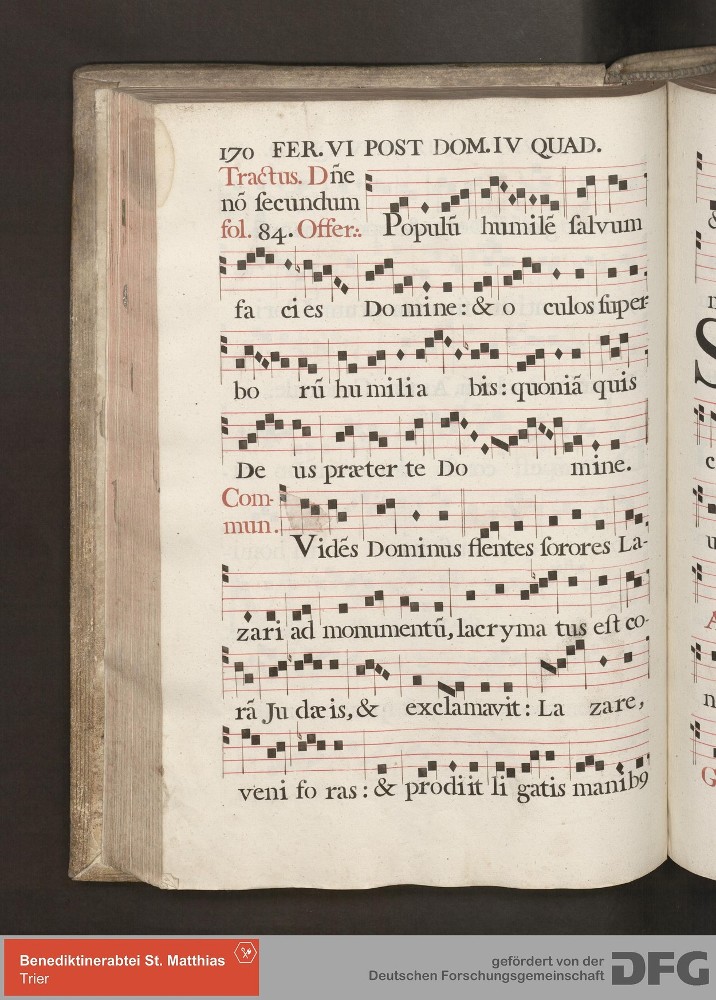 170 FER. VI POST DOM. IV QUAD.
Tractus. Dñe
nō ſecundum
fol. 84. Offer.:. Populū humilē ſalvum
fa ci es Do mine: & o culos ſuper-
bo rū hu mi li a bis: quoniā quis
De us præter te Do mine.
Com-
mun. Vidẽs Dominus flentes ſorores La-
zari ad monumentū, lacryma tus eſt co-
rā Ju dæ is, & exclamavit: La zare,
veni fo ras: & prodiit li gatis manib9
Benediktinerabtei St. Matthias
Trier
gefördert von der
Deutschen Forschungsgemeinschaft DFG